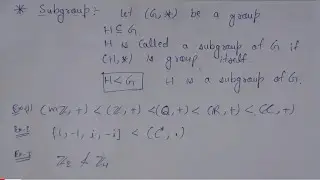 * Subgroup:- Let (G, *) be a group
H ⊆ G
H is called a subgroup of G if
(H, *) is group itself.
H < G H is a subgroup of G.
Ex-1) (mZ, +) < (Z, +) < (Q, +) < (R, +) < (C, +)
Ex-2 {1, -1, i, -i} < (C*, ·)
Ex-3 Z₂ ≮ Z₄